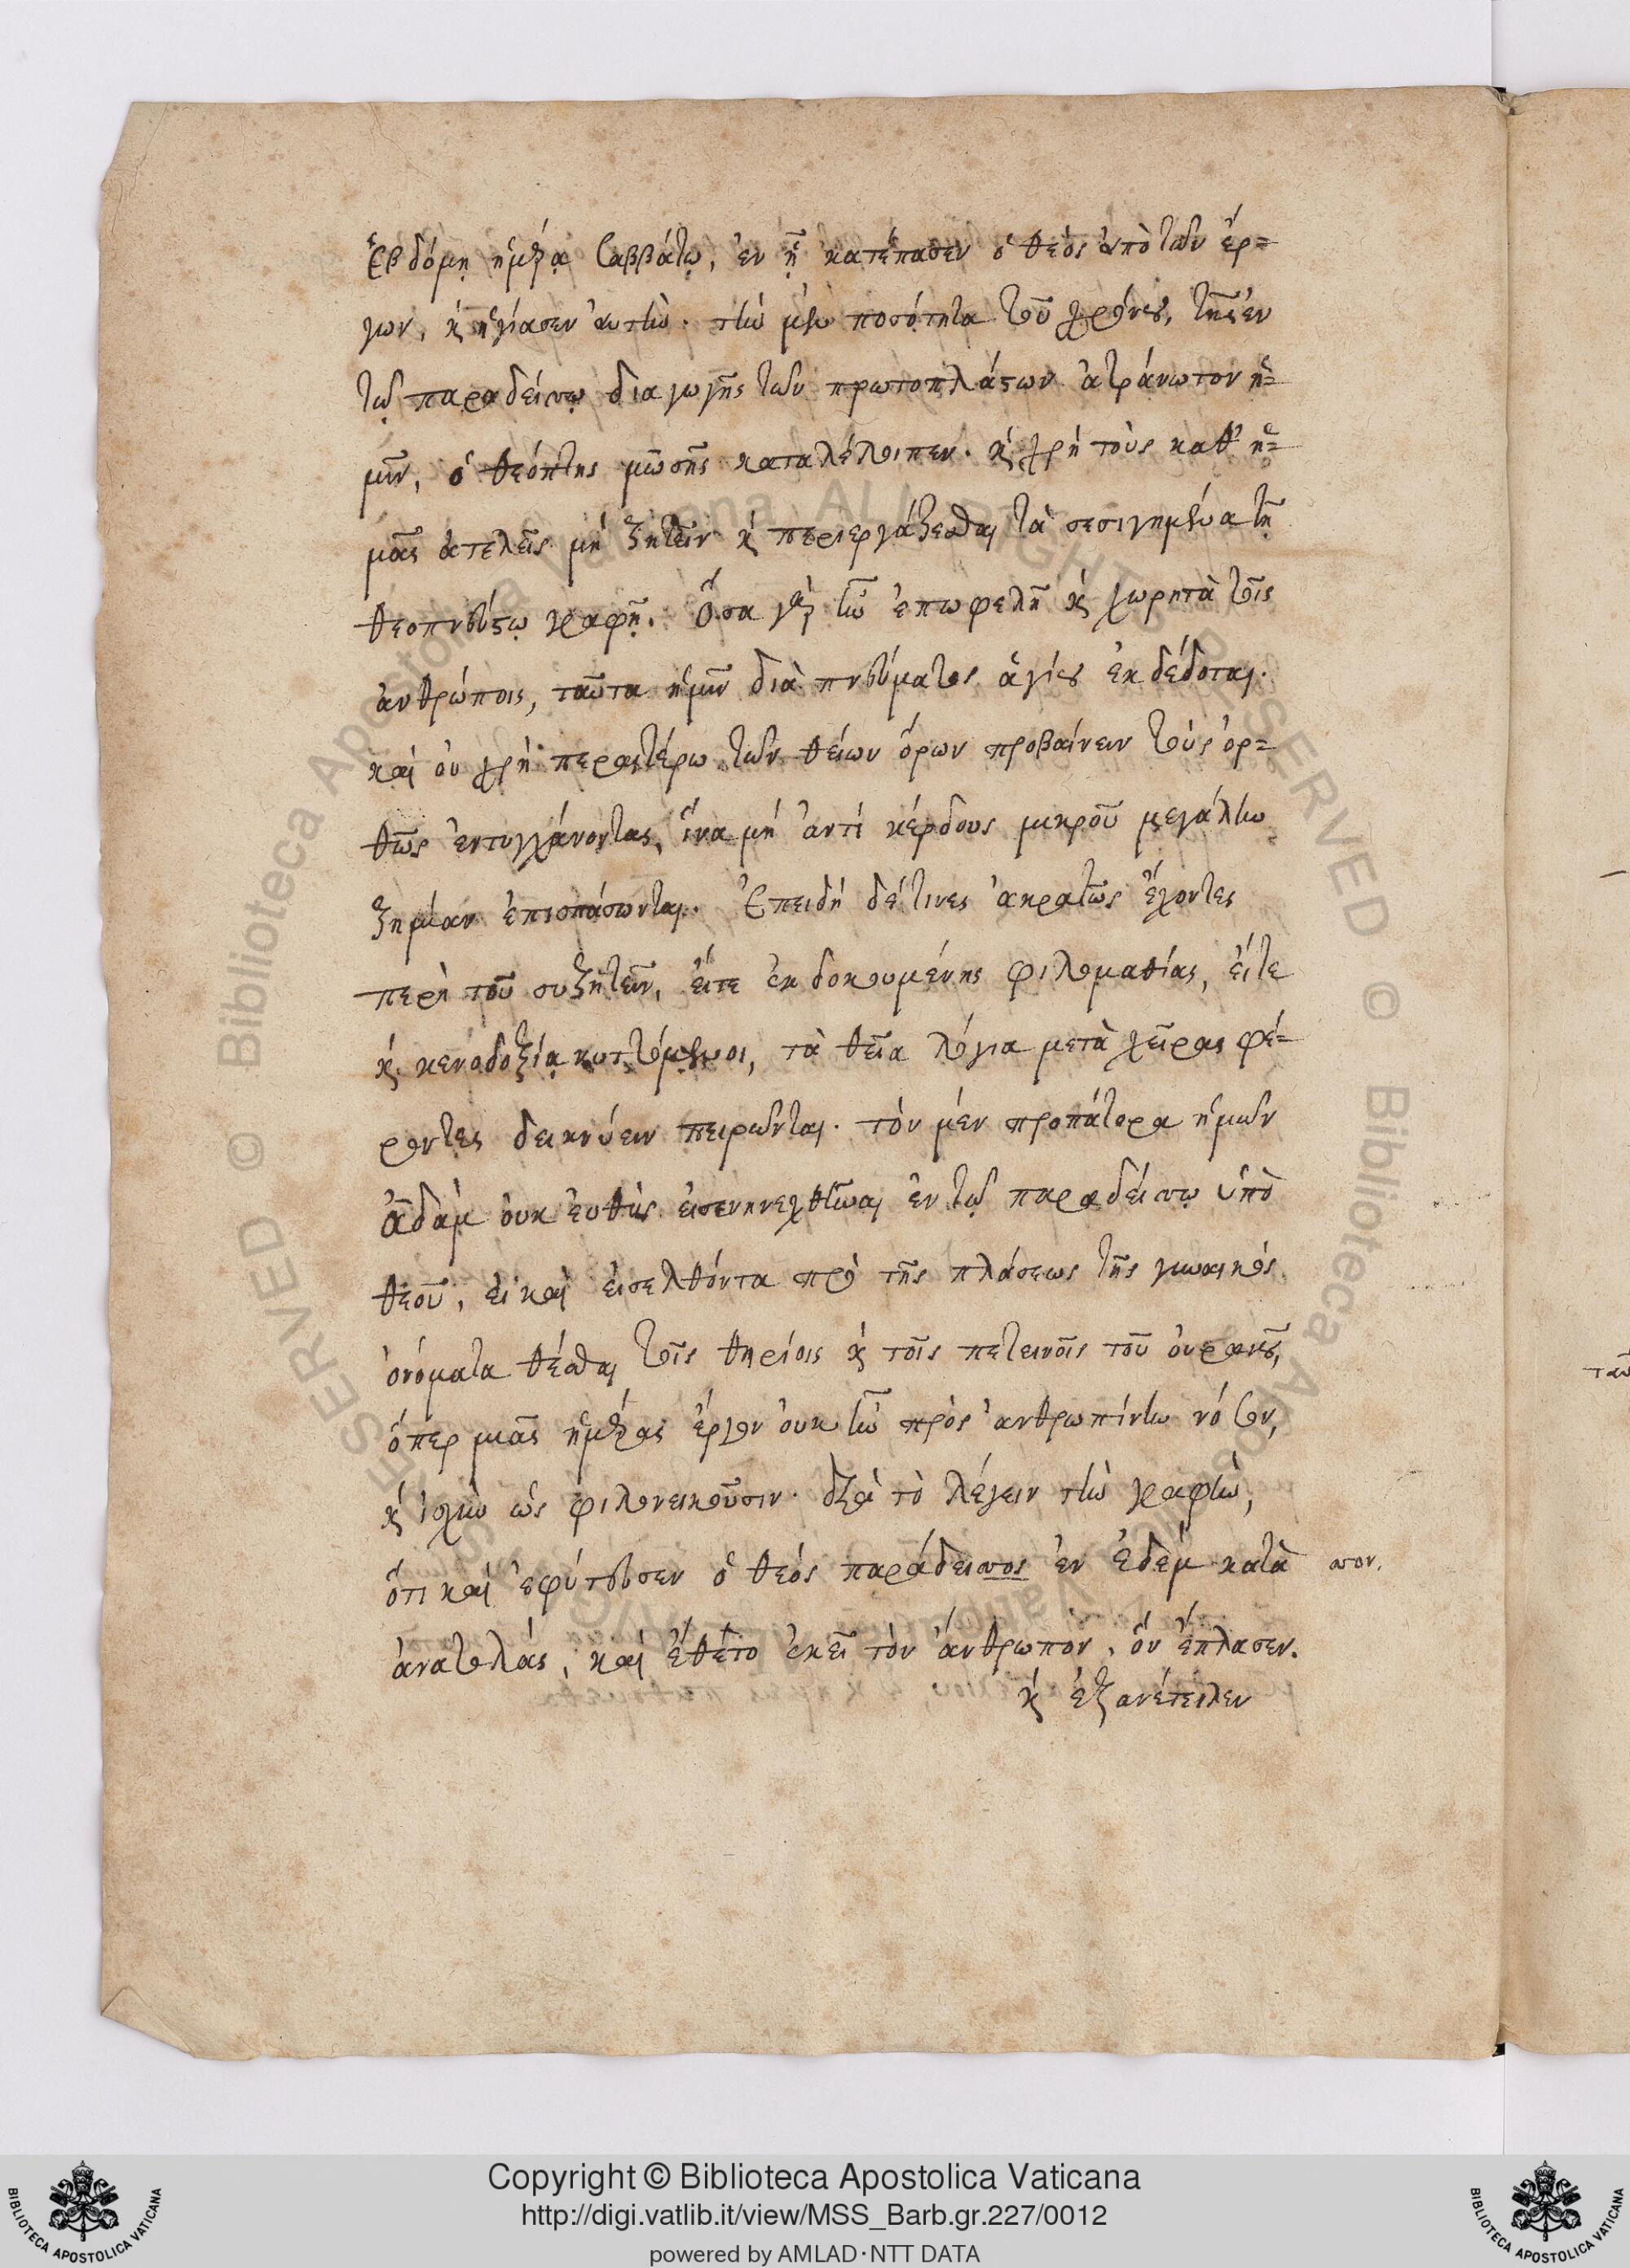 Ἑβδόμῃ ἡμέρᾳ Σαββάτῳ, ἐν ᾗ κατέπαυσεν ὁ θεὸς ἀπὸ τῶν ἔρ=
γων, κ ἡγίασεν ἀυτὴν. τὴν μὲν ποσότητα τοῦ χρόνου, τῆς ἐν
τῷ παραδείσῳ διαγωγῆς τῶν πρωτοπλάστων ἀτράνωτον ἡ=
μῖν, ὁ θεόπτης μωσῆς καταλέλοιπεν. κ χρὴ τοὺς καθ' ἡ=
μᾶς ἀτελεῖς μὴ ζητεῖν κ περιεργάζεσθαι τὰ σεσιγημένα τῇ
θεοπνεύστῳ γραφῇ. Ὅσα γὰρ ἦν ἐπωφελῆ κ χωρητὰ τοῖς
ἀνθρώποις, ταῦτα ἡμῖν διὰ πνεύματος ἁγίου ἐκδέδοται.
καὶ οὐ χρὴ περαιτέρω τῶν θείων ὅρων προβαίνειν τοὺς ὀρ=
θῶς ἐντυγχάνοντας, ἵνα μὴ ἀντὶ κέρδους μικροῦ μεγάλην
ζημίαν ἐπισπάσωνται. Ἐπειδὴ δέ τινες ἀκρατῶς ἔχοντες
περὶ τοῦ συζητεῖν, εἴτε ἐκ δοκουμένης φιλομαθίας, εἴτε
κ κενοδοξίᾳ κρατούμενοι, τὰ θεῖα λόγια μετὰ χεῖρας φέ=
ροντες δεικνύειν πειρῶνται. τὸν μὲν προπάτορα ἡμῶν
ἀδὰμ ὀυκ ἐυθὺς εἰσενηνεχθῆναι ἐν τῷ παραδείσῳ ὑπὸ
θεοῦ, εἰ καὶ εἰσελθόντα πρὸ τῆς πλάσεως τῆς γυναικός
ὀνόματα θέσθαι τοῖς θηρίοις κ τοῖς πετεινοῖς τοῦ ὀυρανοῦ,
ὅπερ μιᾶς ἡμέρας ἔργον ὀυκ ἦν πρὸς ἀνθρωπίνην νόσον,
κ ἰσχὺν ὡς φιλονεικοῦσιν. διὰ τὸ λέγειν τὴν γραφὴν,
ὅτι καὶ ἐφύτευσεν ὁ θεός παράδεισος ἐν Ἐδὲμ κατὰ σον.
ἀνατολάς, καὶ ἔθετο ἐκεῖ τὸν ἄνθρωπον, ὃν ἔπλασεν.
κ ἐξανέτειλεν
Copyright © Biblioteca Apostolica Vaticana
http://digi.vatlib.it/view/MSS_Barb.gr.227/0012
powered by AMLAD·NTT DATA